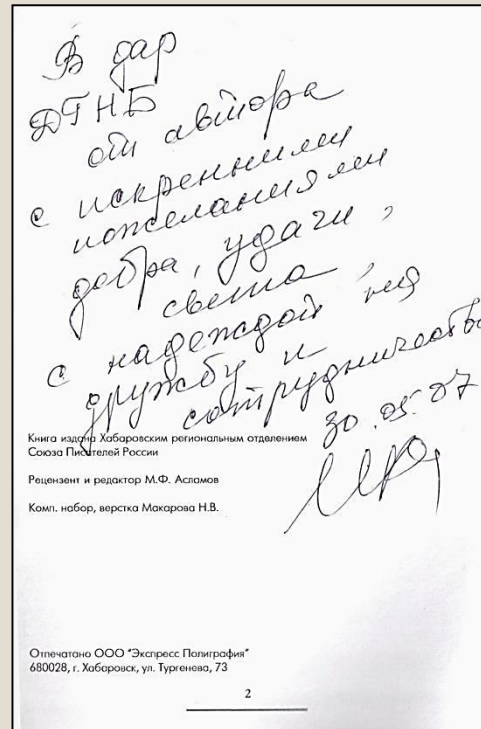 В дар
ДГНБ
от автора
с искренними
пожеланиями
добра, удачи,
света,
с надеждой на
дружбу и
сотрудничество
30.05.07
Книга издана Хабаровским региональным отделением
Союза Писателей России
Рецензент и редактор М.Ф. Асламов
Комп. набор, верстка Макарова Н.В.
Отпечатано ООО "Экспресс Полиграфия"
680028, г. Хабаровск, ул. Тургенева, 73
2